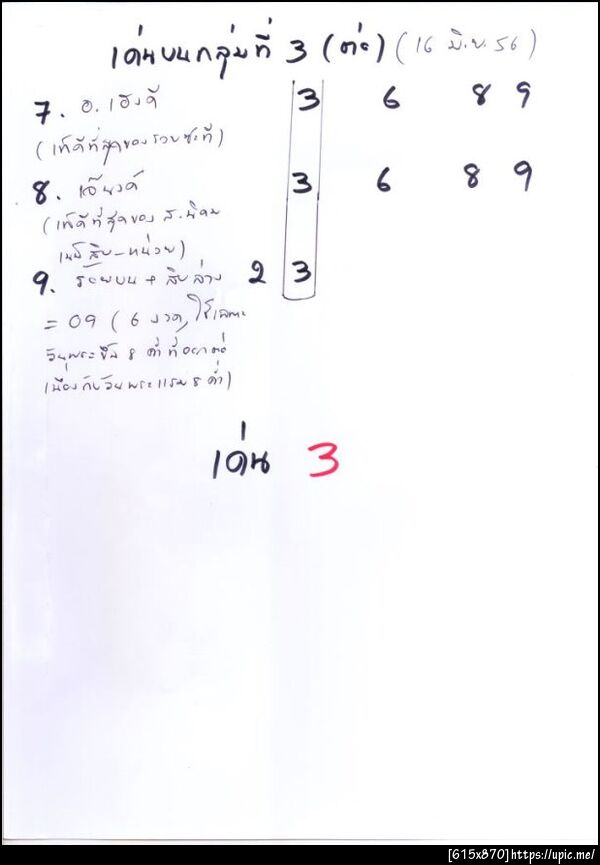 เด่นบนกลุ่มที่ 3 (ต่อ) (16 มิ.ย. 56)
7. อ. เฮงดี 3 6 8 9
(เก็ดีที่สุดของรวยซะที)
8. เจ๊ยงค์ 3 6 8 9
(เก็ดีที่สุดของ ส. นิคม
เน้นสิบ-หน่วย)
9. ร้อยบน + สิบล่าง 2 3
= 09 (6 งวด, ใช้เฉพาะ
วันพระขึ้น 8 ค่ำที่ออกต่อ
เนื่องกับวันพระแรม 8 ค่ำ)
เด่น 3
[615x870]https://upic.me/